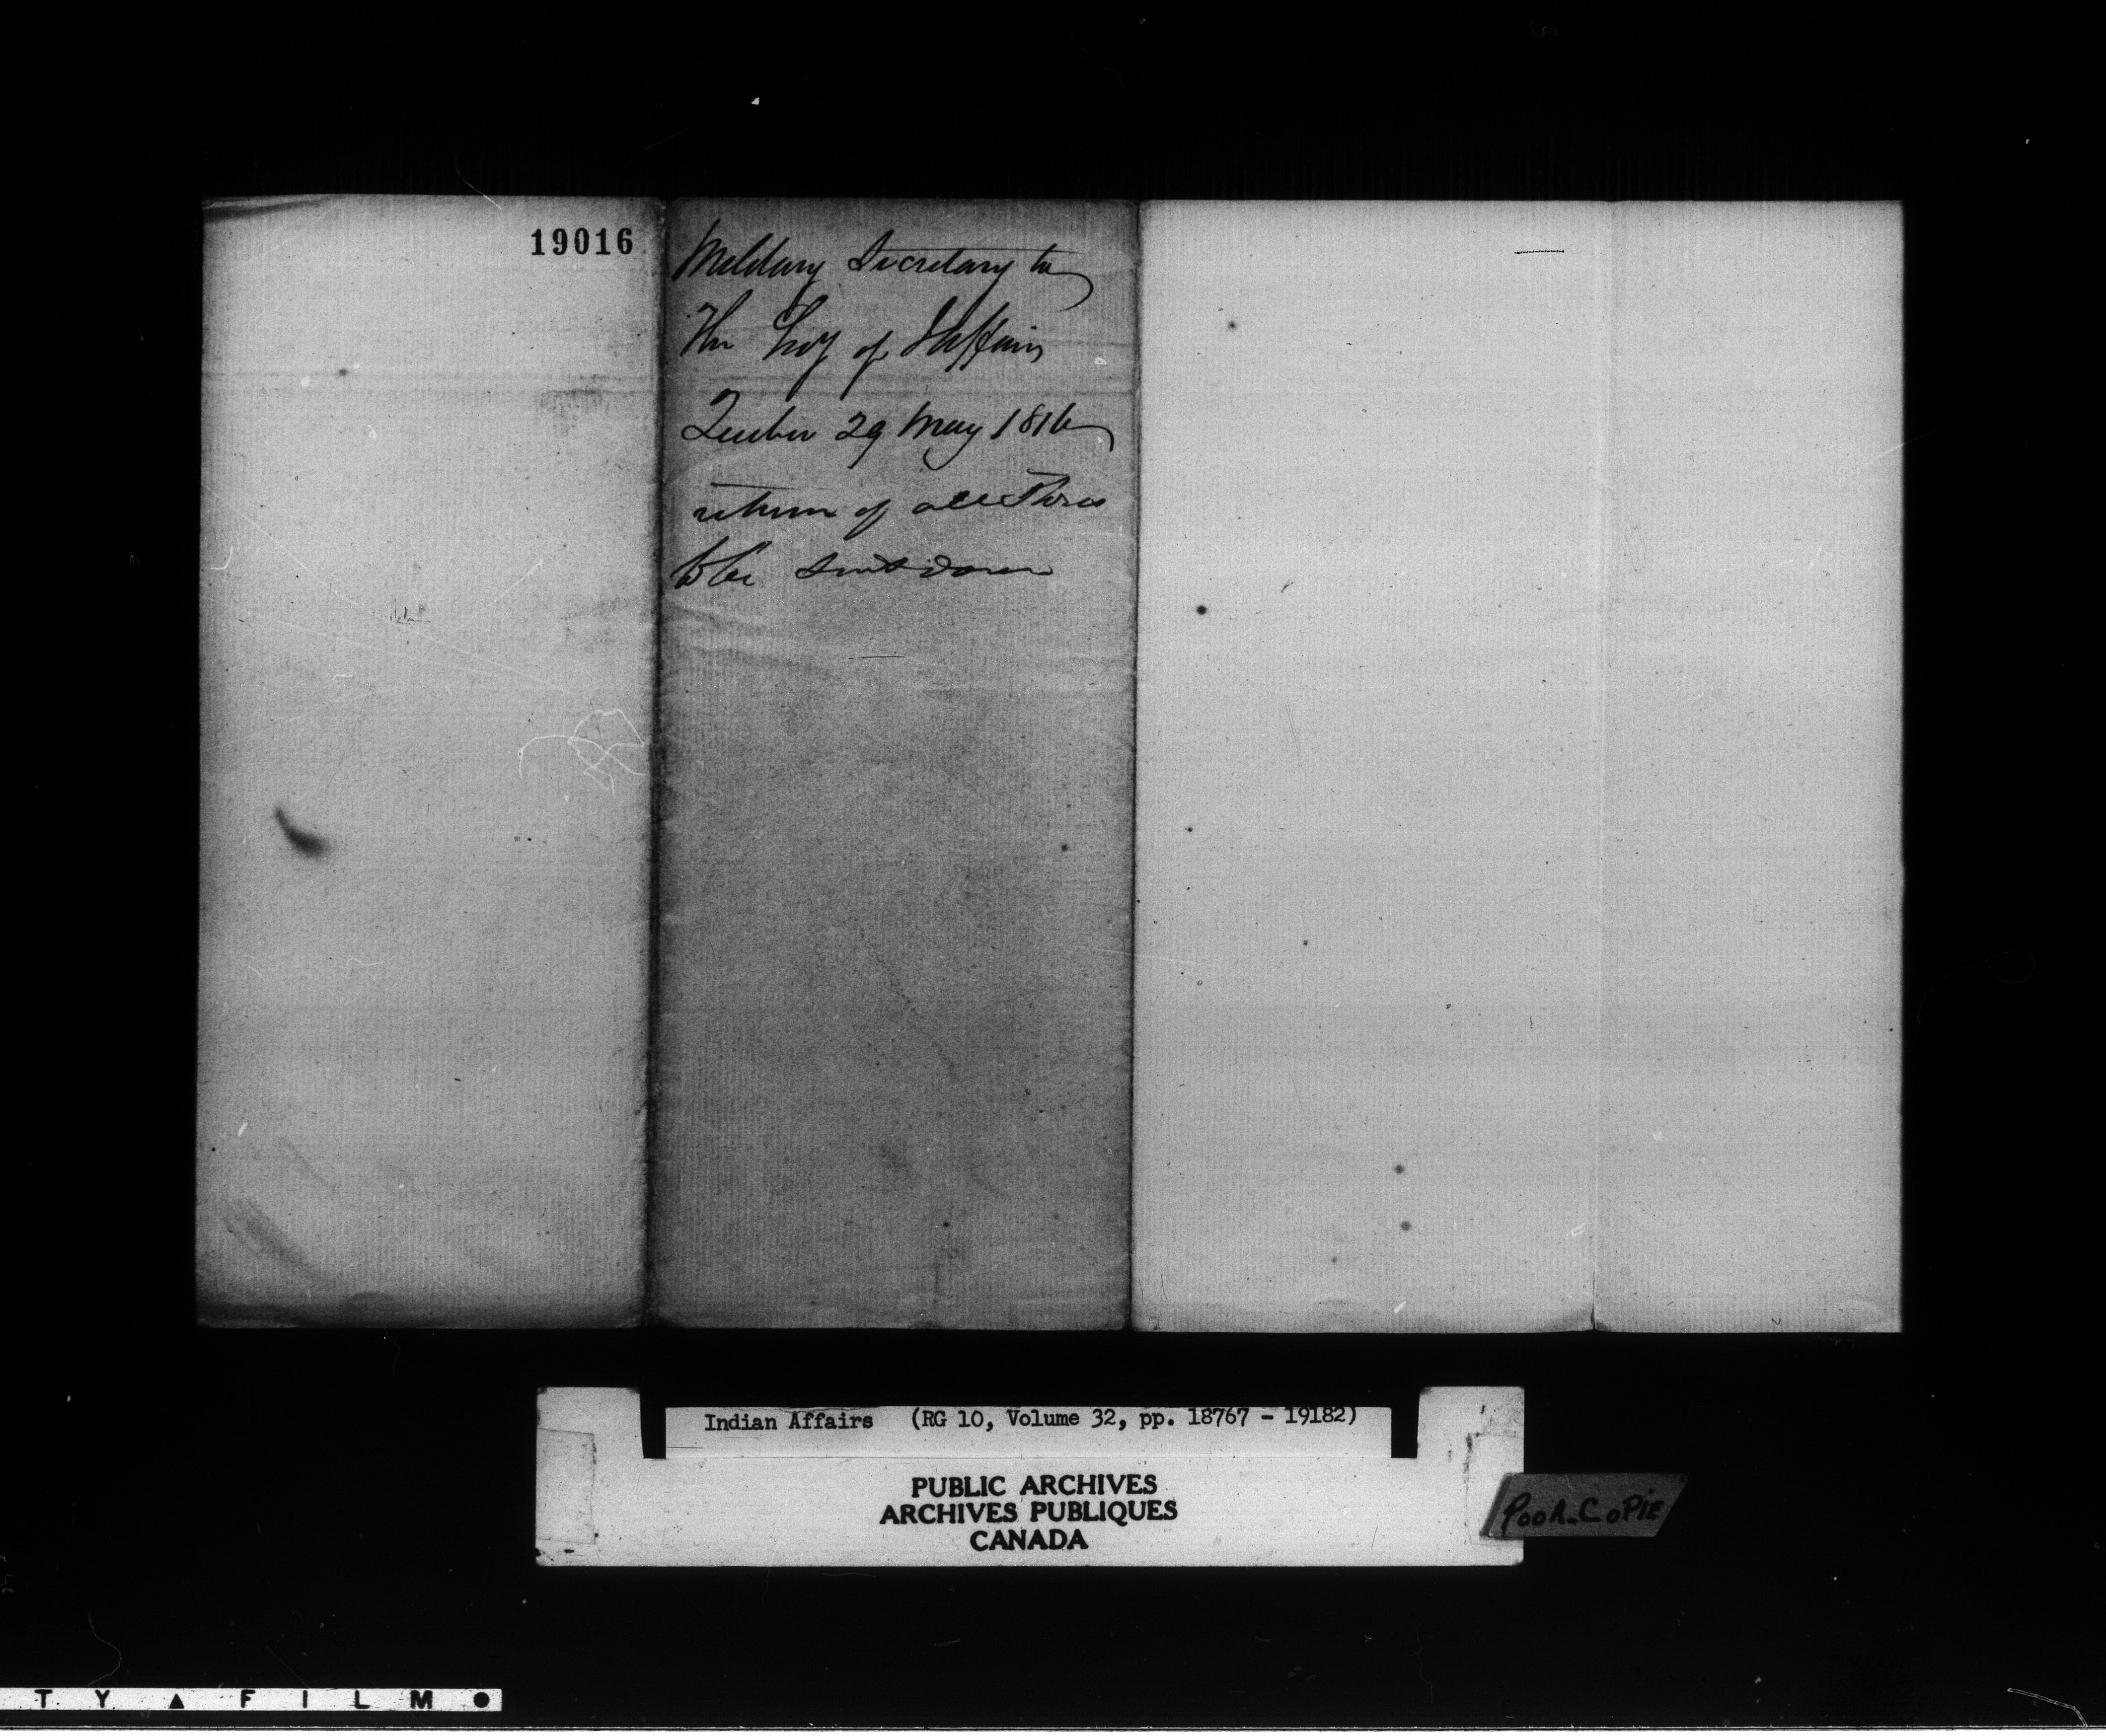 19016
Military Secretary to
The Secy of I Affairs
Quebec 29 May 1816
return of all Stores
to be sent down
Indian Affairs (RG 10, Volume 32, pp. 18767 - 19182)
PUBLIC ARCHIVES
ARCHIVES PUBLIQUES
CANADA
POOR_COPIE
T Y ▲ F I L M ●